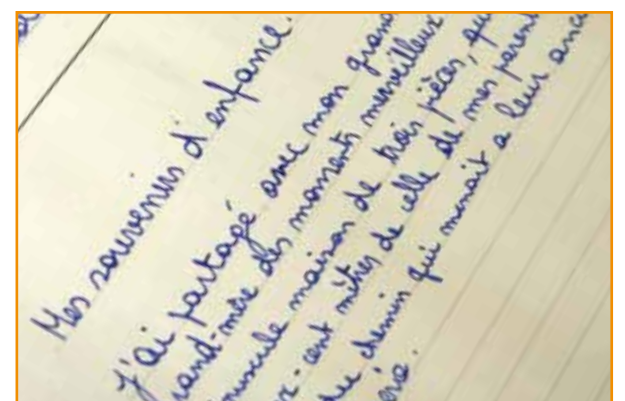 Mes souvenirs d'enfance.
J'ai partagé avec mon grand
rand-mère des moments merveilleux
nuscule maison de trois pièces, qui
x-cent mètres de celle de mes parent
du chemin qui menait a leur anc